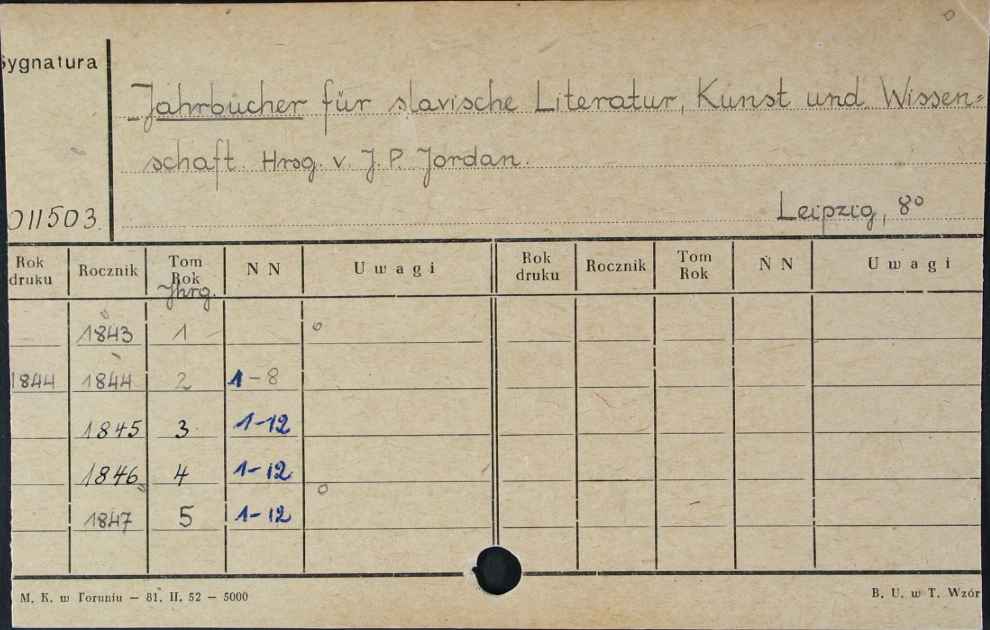 Sygnatura
Jahrbücher für slavische Literatur, Kunst und Wissen=
schaft. Hrsg. v. J. P. Jordan.
011503.
Leipzig, 8°
Rok druku Rocznik Tom Rok N N Uwagi Rok druku Rocznik Tom Rok N N Uwagi
Jhrg.
1843 1
1844 1844 2 1-8
1845 3 1-12
1846 4 1-12
1847 5 1-12
M. K. w Toruniu — 81. II. 52 — 5000
B. U. w T. Wzór